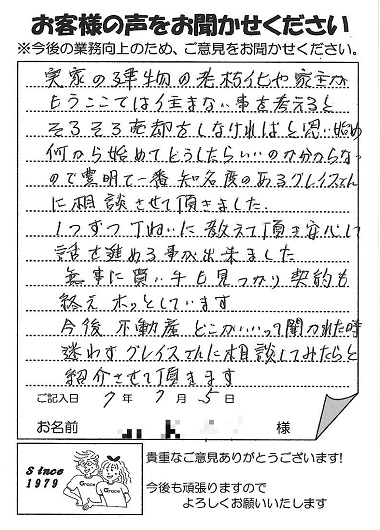 お客様の声をお聞かせください
※今後の業務向上のため、ご意見をお聞かせください。
実家の建物の老朽化や家主が
もうここでは住まない事を考えると
そろそろ売却をしなければと思い始め
何から始めてどうしたらいいのか分からない
ので豊明で一番知名度のあるグレイスさん
に相談させて頂きました.
1つずつ丁ねいに教えて頂き安心して
話を進める事が出来ました
無事に買い手も見つかり契約も
終えホッとしています
今後不動産どこがいいって聞かれた時
迷わずグレイスさんに相談してみたらと
紹介させて頂きます
ご記入日 7年 7月 5日
お名前 様
Since
1979
Grace Grace
貴重なご意見ありがとうございます!
今後も頑張りますので
よろしくお願いいたします